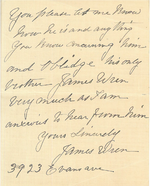 you please let me know
how he is and any thing
you know concerning him
and oblidge his only
brother James Wren
very much as I am
anxious to hear from him
yours Sincerely
James Wren
3923 Evans ave